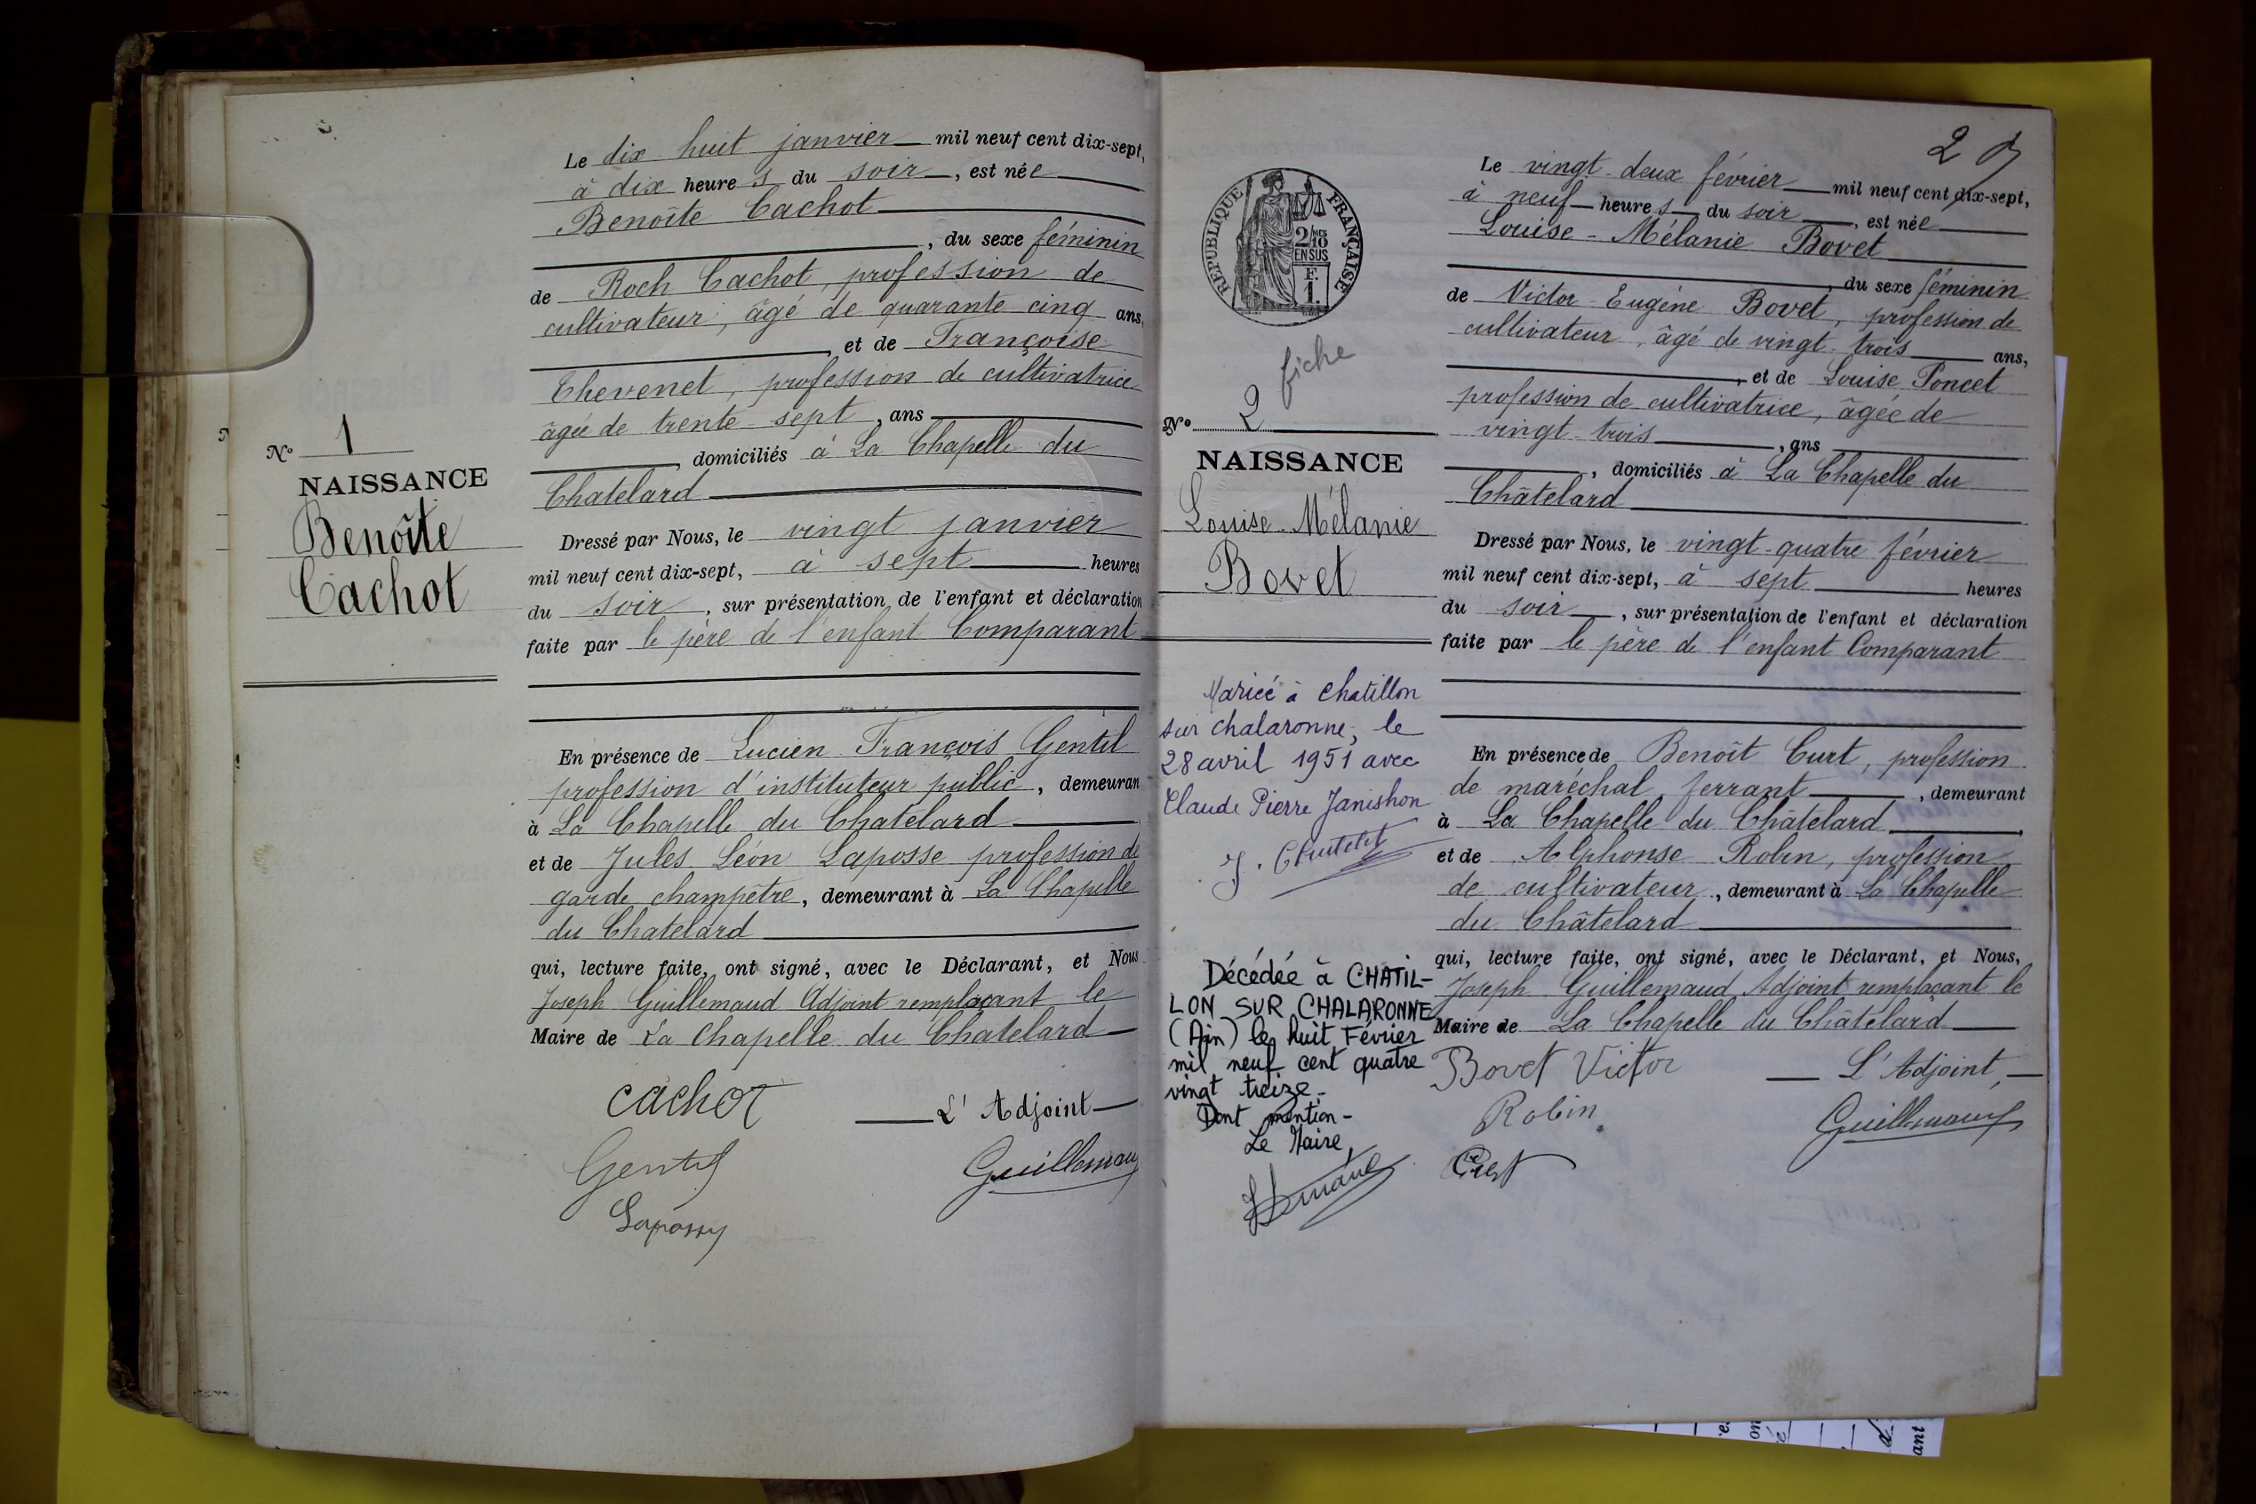 Le dix huit janvier mil neuf cent dix-sept,
à dix heures du soir, est née
Benoîte Cachot
, du sexe féminin
de Roch Cachot, profession de
cultivateur, âgé de quarante cinq ans,
, et de Françoise
Chevenet, profession de cultivatrice
âgée de trente sept, ans
, domiciliés à La Chapelle du
Chatelard
Dressé par Nous, le vingt janvier
mil neuf cent dix-sept, à sept heures
du soir, sur présentation de l'enfant et déclaration
faite par le père de l'enfant Comparant
En présence de Lucien François Gentil
profession d'instituteur public, demeuran
à La Chapelle du Chatelard
et de Jules Léon Laposse profession de
garde champêtre, demeurant à La Chapelle
du Chatelard
qui, lecture faite, ont signé, avec le Déclarant, et Nous
Joseph Guillemaud Adjoint remplaçant le
Maire de La Chapelle du Chatelard
L'Adjoint
Cachot
Gentil
Guillemau
Laposse
N° 1
NAISSANCE
Benoîte
Cachot
REPUBLIQUE FRANÇAISE
2/10 EN SUS
F. 1.
fiche
N° 2
NAISSANCE
Louise-Mélanie
Bovet
Mariée à Chatillon
sur Chalaronne, le
28 avril 1951 avec
Claude Pierre Janishon
Décédée à CHATIL-
LON SUR CHALARONNE
(Ain) le huit Février
mil neuf cent quatre
vingt treize.
Dont mention-
Le Maire,
2
Le vingt-deux février mil neuf cent dix-sept,
à neuf heures du soir, est née
Louise-Mélanie Bovet
, du sexe féminin
de Victor Eugène Bovet, profession de
cultivateur, âgé de vingt-trois ans,
, et de Louise Poncet
profession de cultivatrice, âgée de
vingt-trois, ans
, domiciliés à La Chapelle du
Châtelard
Dressé par Nous, le vingt-quatre février
mil neuf cent dix-sept, à sept heures
du soir, sur présentation de l'enfant et déclaration
faite par le père de l'enfant Comparant
En présence de Benoît Curt, profession
de maréchal ferrant, demeurant
à La Chapelle du Châtelard
et de Alphonse Robin, profession
de cultivateur, demeurant à La Chapelle
du Châtelard
qui, lecture faite, ont signé, avec le Déclarant, et Nous,
Joseph Guillemaud Adjoint remplaçant le
Maire de La Chapelle du Châtelard
Bovet Victor
L'Adjoint,
Robin
Guillemaud
Curt